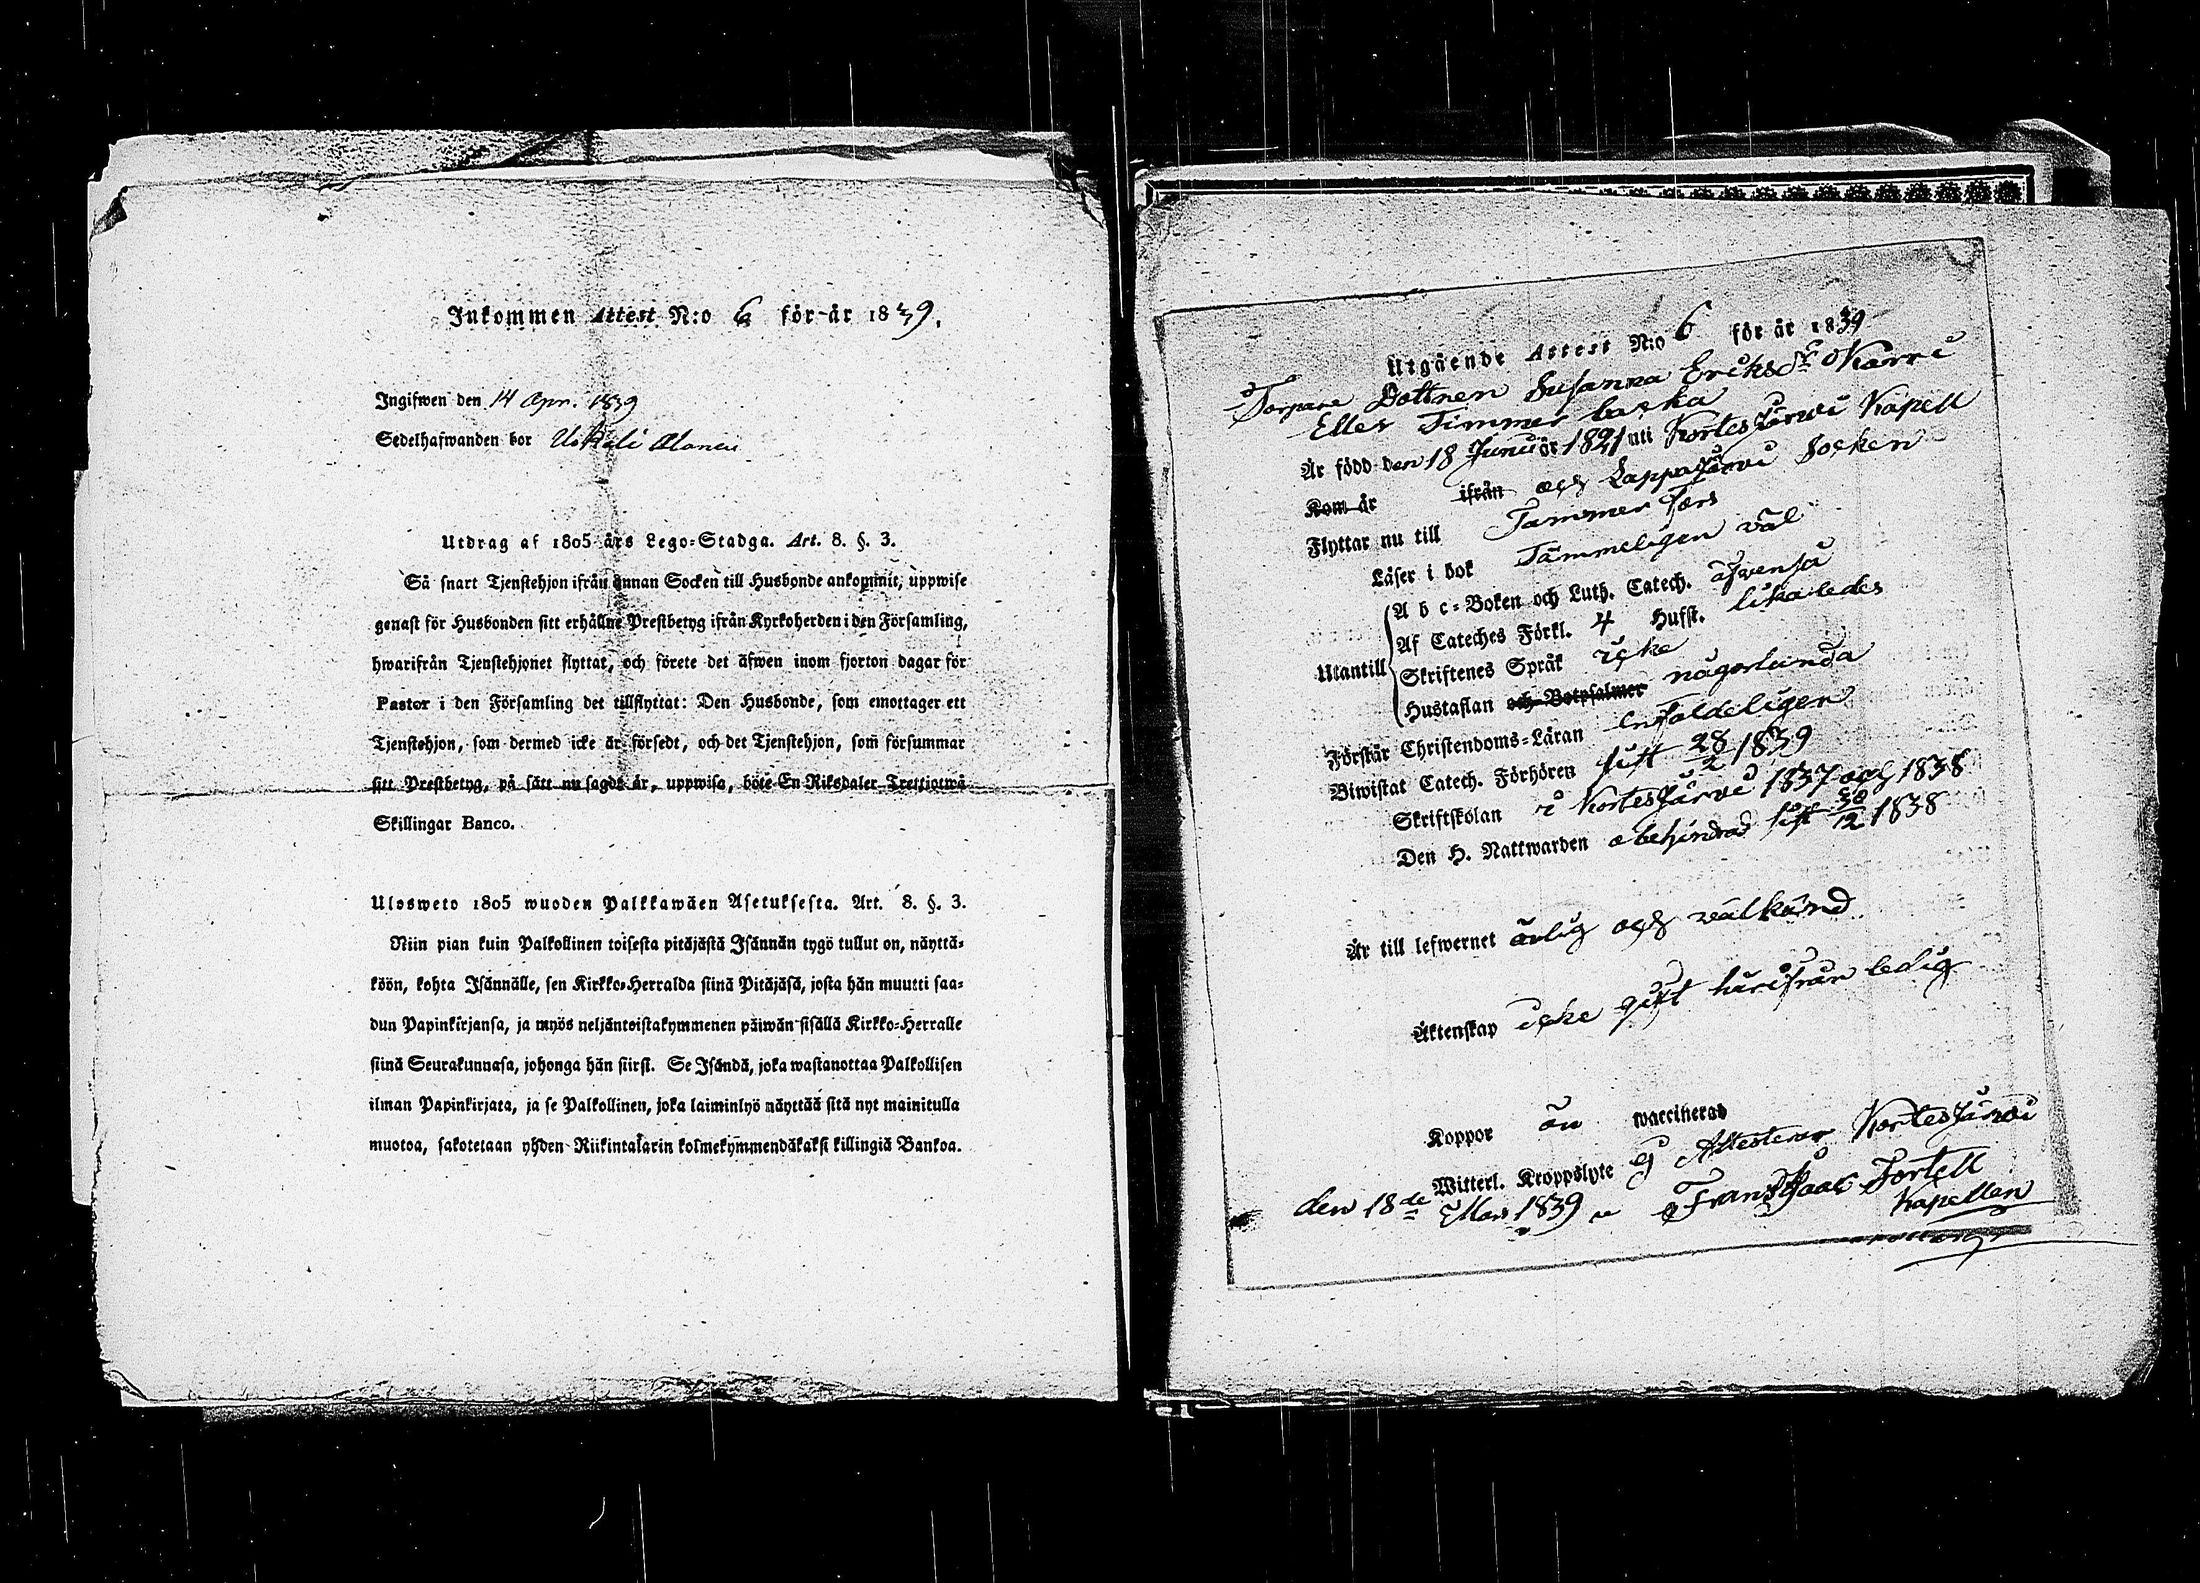 Inkommen Attest N:o 6 för år 1839.
Ingifwen den 14 Apr. 1839
Sedelhafwanden bor
Utdrag af 1805 års Lego-Stadga. Art. 8. §. 3.
Så snart Tjenstehjon ifrån annan Socken till Husbonde ankommit, uppwise
genast för Husbonden sitt erhållne Prestbetyg ifrån Kyrkoherden i den Församling,
hwarifrån Tjenstehjonet flyttat, och förete det äfwen inom fjorton dagar för
Pastor i den Församling det tillflyttat: Den Husbonde, som emottager ett
Tjenstehjon, som dermed icke är försedt, och det Tjenstehjon, som försummar
sitt Prestbetyg, på sätt nu sagdt är, uppwisa, böte En Riksdaler Trettiotwå
Skillingar Banco.
Ulosweto 1805 wuoden Palkkawäen Asetuksesta. Art. 8. §. 3.
Niin pian kuin Palkollinen toisesta pitäjästä Isännän tygö tullut on, näyttä-
köön, kohta Isännälle, sen Kirkko-Herralda siinä Pitäjäsä, josta hän muutti saa-
dun Papinkirjansa, ja myös neljäntoistakymmenen päiwän sisällä Kirkko-Herralle
siinä Seurakunnasa, johonga hän siirsi. Se Isändä, joka wastanottaa Palkollisen
ilman Papinkirjata, ja se Palkollinen, joka laiminlyö näyttää sitä nyt mainitulla
muotoa, sakotetaan yhden Riikintalarin kolmekymmendäkaksi killingiä Bankoa.
Utgående Attest N:o 6 för år 1839
Torpare Dottren Susanna Eriksdr Karri
Eller Timmerbacka
Är född den 18 Junii år 1821 uti Kortesjärwi Kapell
Kom år ifrån och Lappajärvi Socken
Flyttar nu till Tammerfors
Läser i bok Tämmeligen väl
Utantill
A b c-Boken och Luth. Catech. äfvenså
Af Cateches Förkl. 4 Hufst. likaledes
Skriftenes Språk icke
Hustaflan och Botpsalmer någorlunda
Förstår Christendoms-Läran enfaldeligen
Biwistat Catech. Förhören sist 28/2 1839
Skriftskolan i Kortesjärvi 1837 och 1838
Den H. Nattwarden obehindrad sist 30/12 1838
Är till lefwernet ärlig och välkänd
Äktenskap icke gift härifrån ledig
Koppor än waccinerad
Witterl. Kroppslyte ej Attesterar Kortesjärvi
den 18de Mars 1839 Frans Isaac Forsell
Kapellan